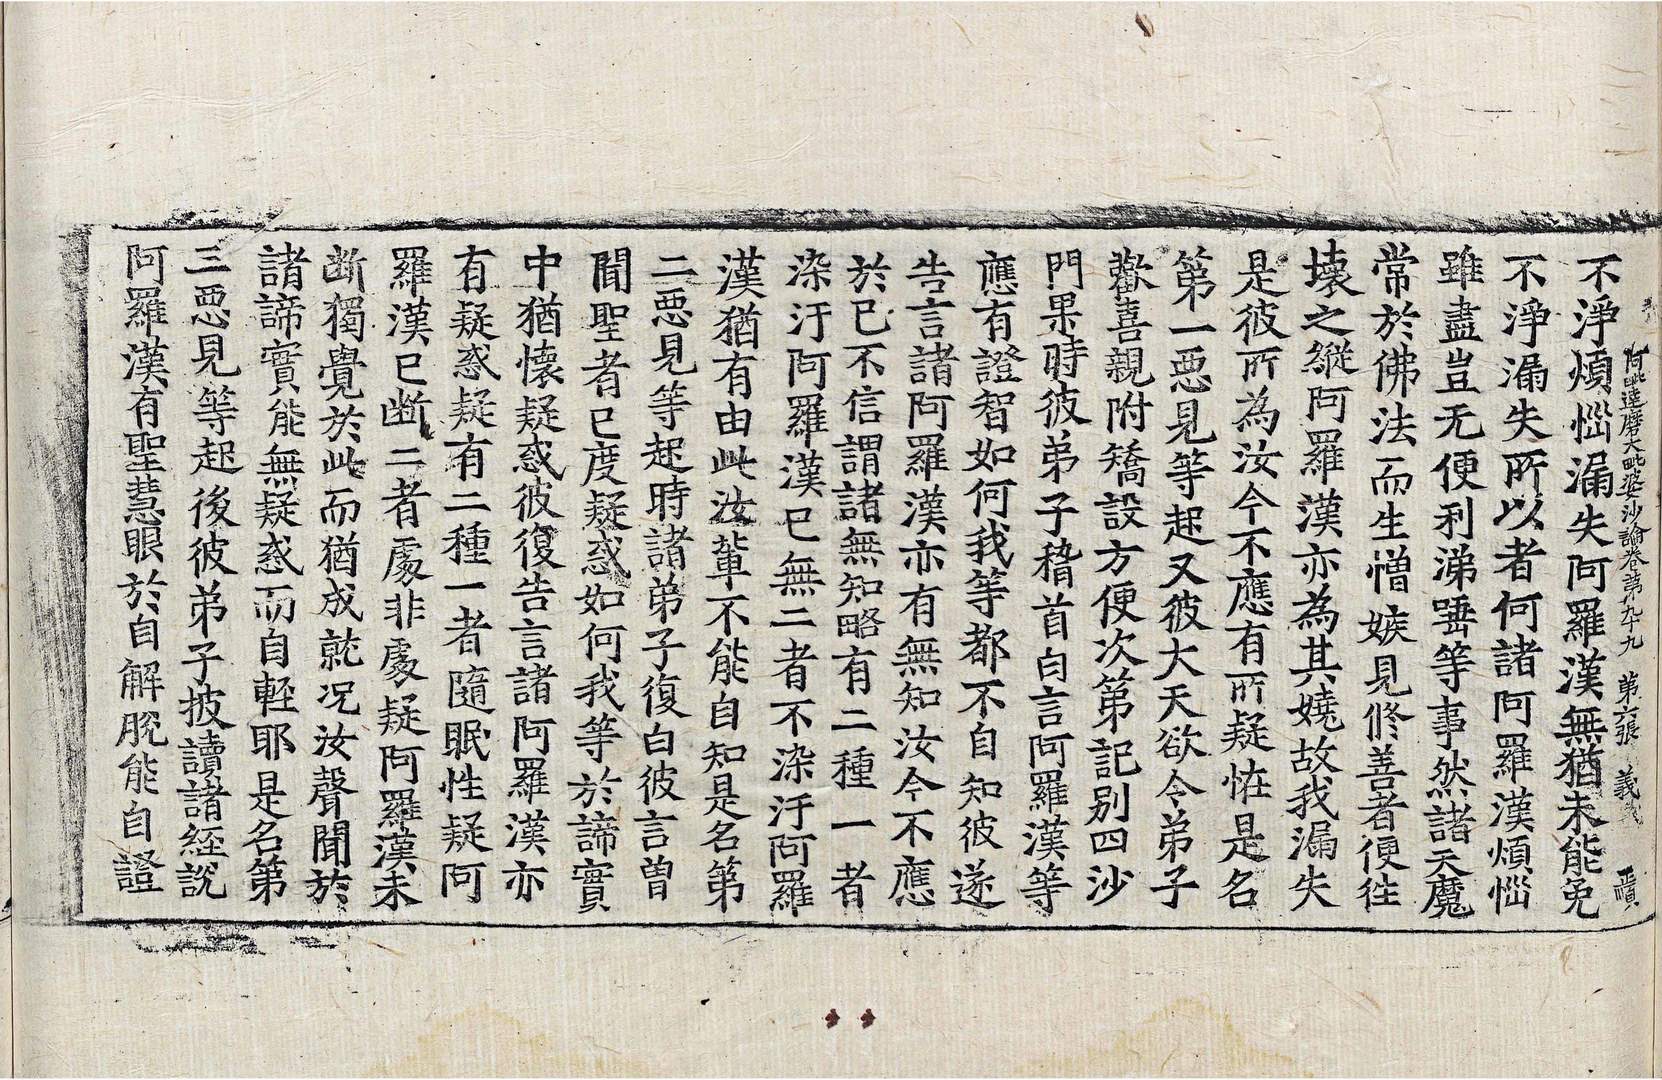 阿毗達磨大毗婆沙論卷第九十九　第六張　義
不淨煩惱漏失阿羅漢無猶未能免
不淨漏失所以者何諸阿羅漢煩惱
雖盡豈无便利涕唾等事然諸天魔
常於佛法而生憎嫉見修善者便往
壞之縱阿羅漢亦為其嬈故我漏失
是彼所為汝今不應有所疑恠是名
第一惡見等起又彼大天欲令弟子
歡喜親附矯設方便次第記别四沙
門果時彼弟子稽首白言阿羅漢等
應有證智如何我等都不自知彼遂
告言諸阿羅漢亦有無知汝今不應
於已不信謂諸無知略有二種一者
染汙阿羅漢已無二者不染汙阿羅
漢猶有由此汝輩不能自知是名第
二惡見等起時諸弟子復白彼言曽
聞聖者已度疑惑如何我等於諦實
中猶懷疑惑彼復告言諸阿羅漢亦
有疑惑疑有二種一者隨眠性疑阿
羅漢已断二者處非處疑阿羅漢未
断獨覺於此而猶成就况汝聲聞於
諸諦實能無疑惑而自輕耶是名第
三惡見等起後彼弟子披讀諸經說
阿羅漢有聖慧眼於自解脫能自證